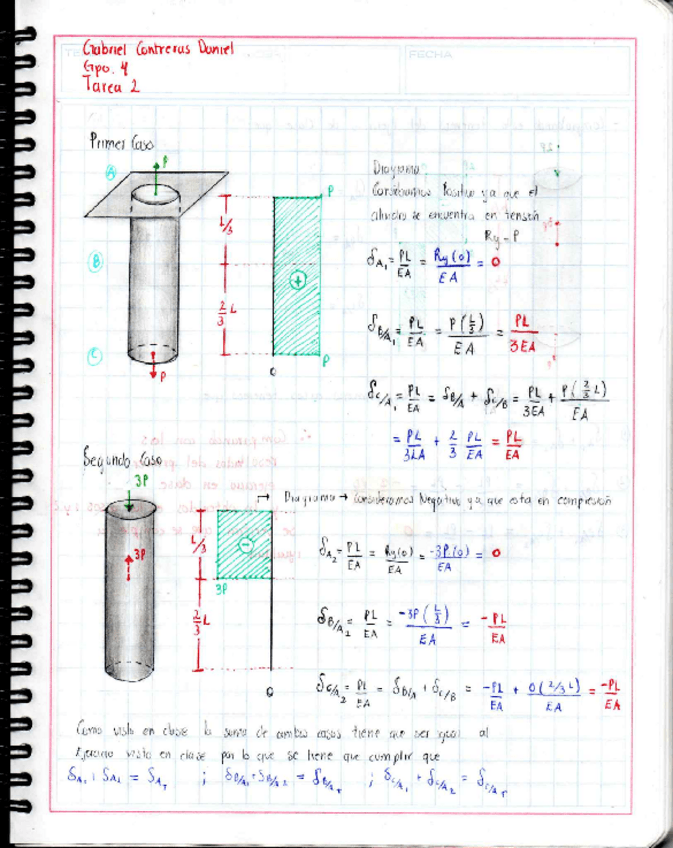 Gabriel Contreras Daniel
Gpo. 4
Tarea 2
FECHA
Primer Caso
A
P
L/3
P
B
+
2/3 L
C
P
0
P
Diagrama
Consideramos Positivo ya que el
cilindro se encuentra en tensión
Ry = P
δA₁ = PL/EA = Ry(0)/EA = 0
δB/A₁ = PL/EA = P(L/3)/EA = PL/3EA
δC/A₁ = PL/EA = δB/A + δC/B = PL/3EA + P(2/3 L)/EA
= PL/3EA + 2/3 PL/EA = PL/EA
Segundo Caso
3P
3P
L/3
-
3P
2/3 L
0
→ Diagrama → Consideramos Negativo ya que esta en compresión
δA₂ = PL/EA = Ry(0)/EA = -3P(0)/EA = 0
δB/A₂ = PL/EA = -3P(L/3)/EA = -PL/EA
δC/A₂ = PL/EA = δB/A + δC/B = -PL/EA + 0(2/3 L)/EA = -PL/EA
Como visto en clase la suma de ambos casos tiene que ser igual al
Ejercicio visto en clase por lo que se tiene que cumplir que
δA₁ + δA₂ = δAT ; δB/A₁ + δB/A₂ = δB/AT ; δC/A₁ + δC/A₂ = δC/AT